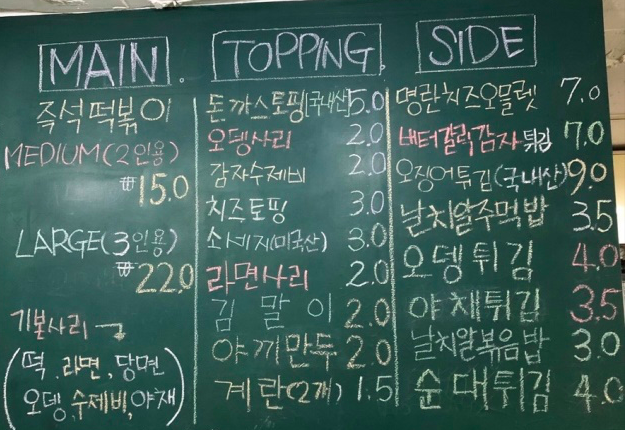 MAIN.
즉석떡볶이
MEDIUM(2인용)
₩15.0
LARGE(3인용)
₩22.0
기본사리
(떡, 라면, 당면
오뎅, 수제비, 야채)
TOPPING.
돈까스토핑(국내산) 5.0
오뎅사리 2.0
감자수제비 2.0
치즈토핑 3.0
소세지(미국산) 3.0
라면사리 2.0
김말이 2.0
야끼만두 2.0
계란(2개) 1.5
SIDE
명란치즈오믈렛 7.0
버터갈릭감자튀김 7.0
오징어튀김(국내산) 9.0
날치알주먹밥 3.5
오뎅튀김 4.0
야채튀김 3.5
날치알볶음밥 3.0
순대튀김 4.0